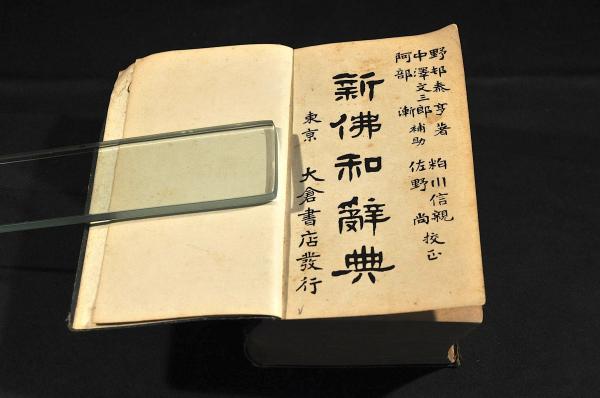 野邨泰亨著　粕川信親
中澤文三郎補助　佐野尚校正
阿部漸
新佛和辭典
東京　大倉書店發行